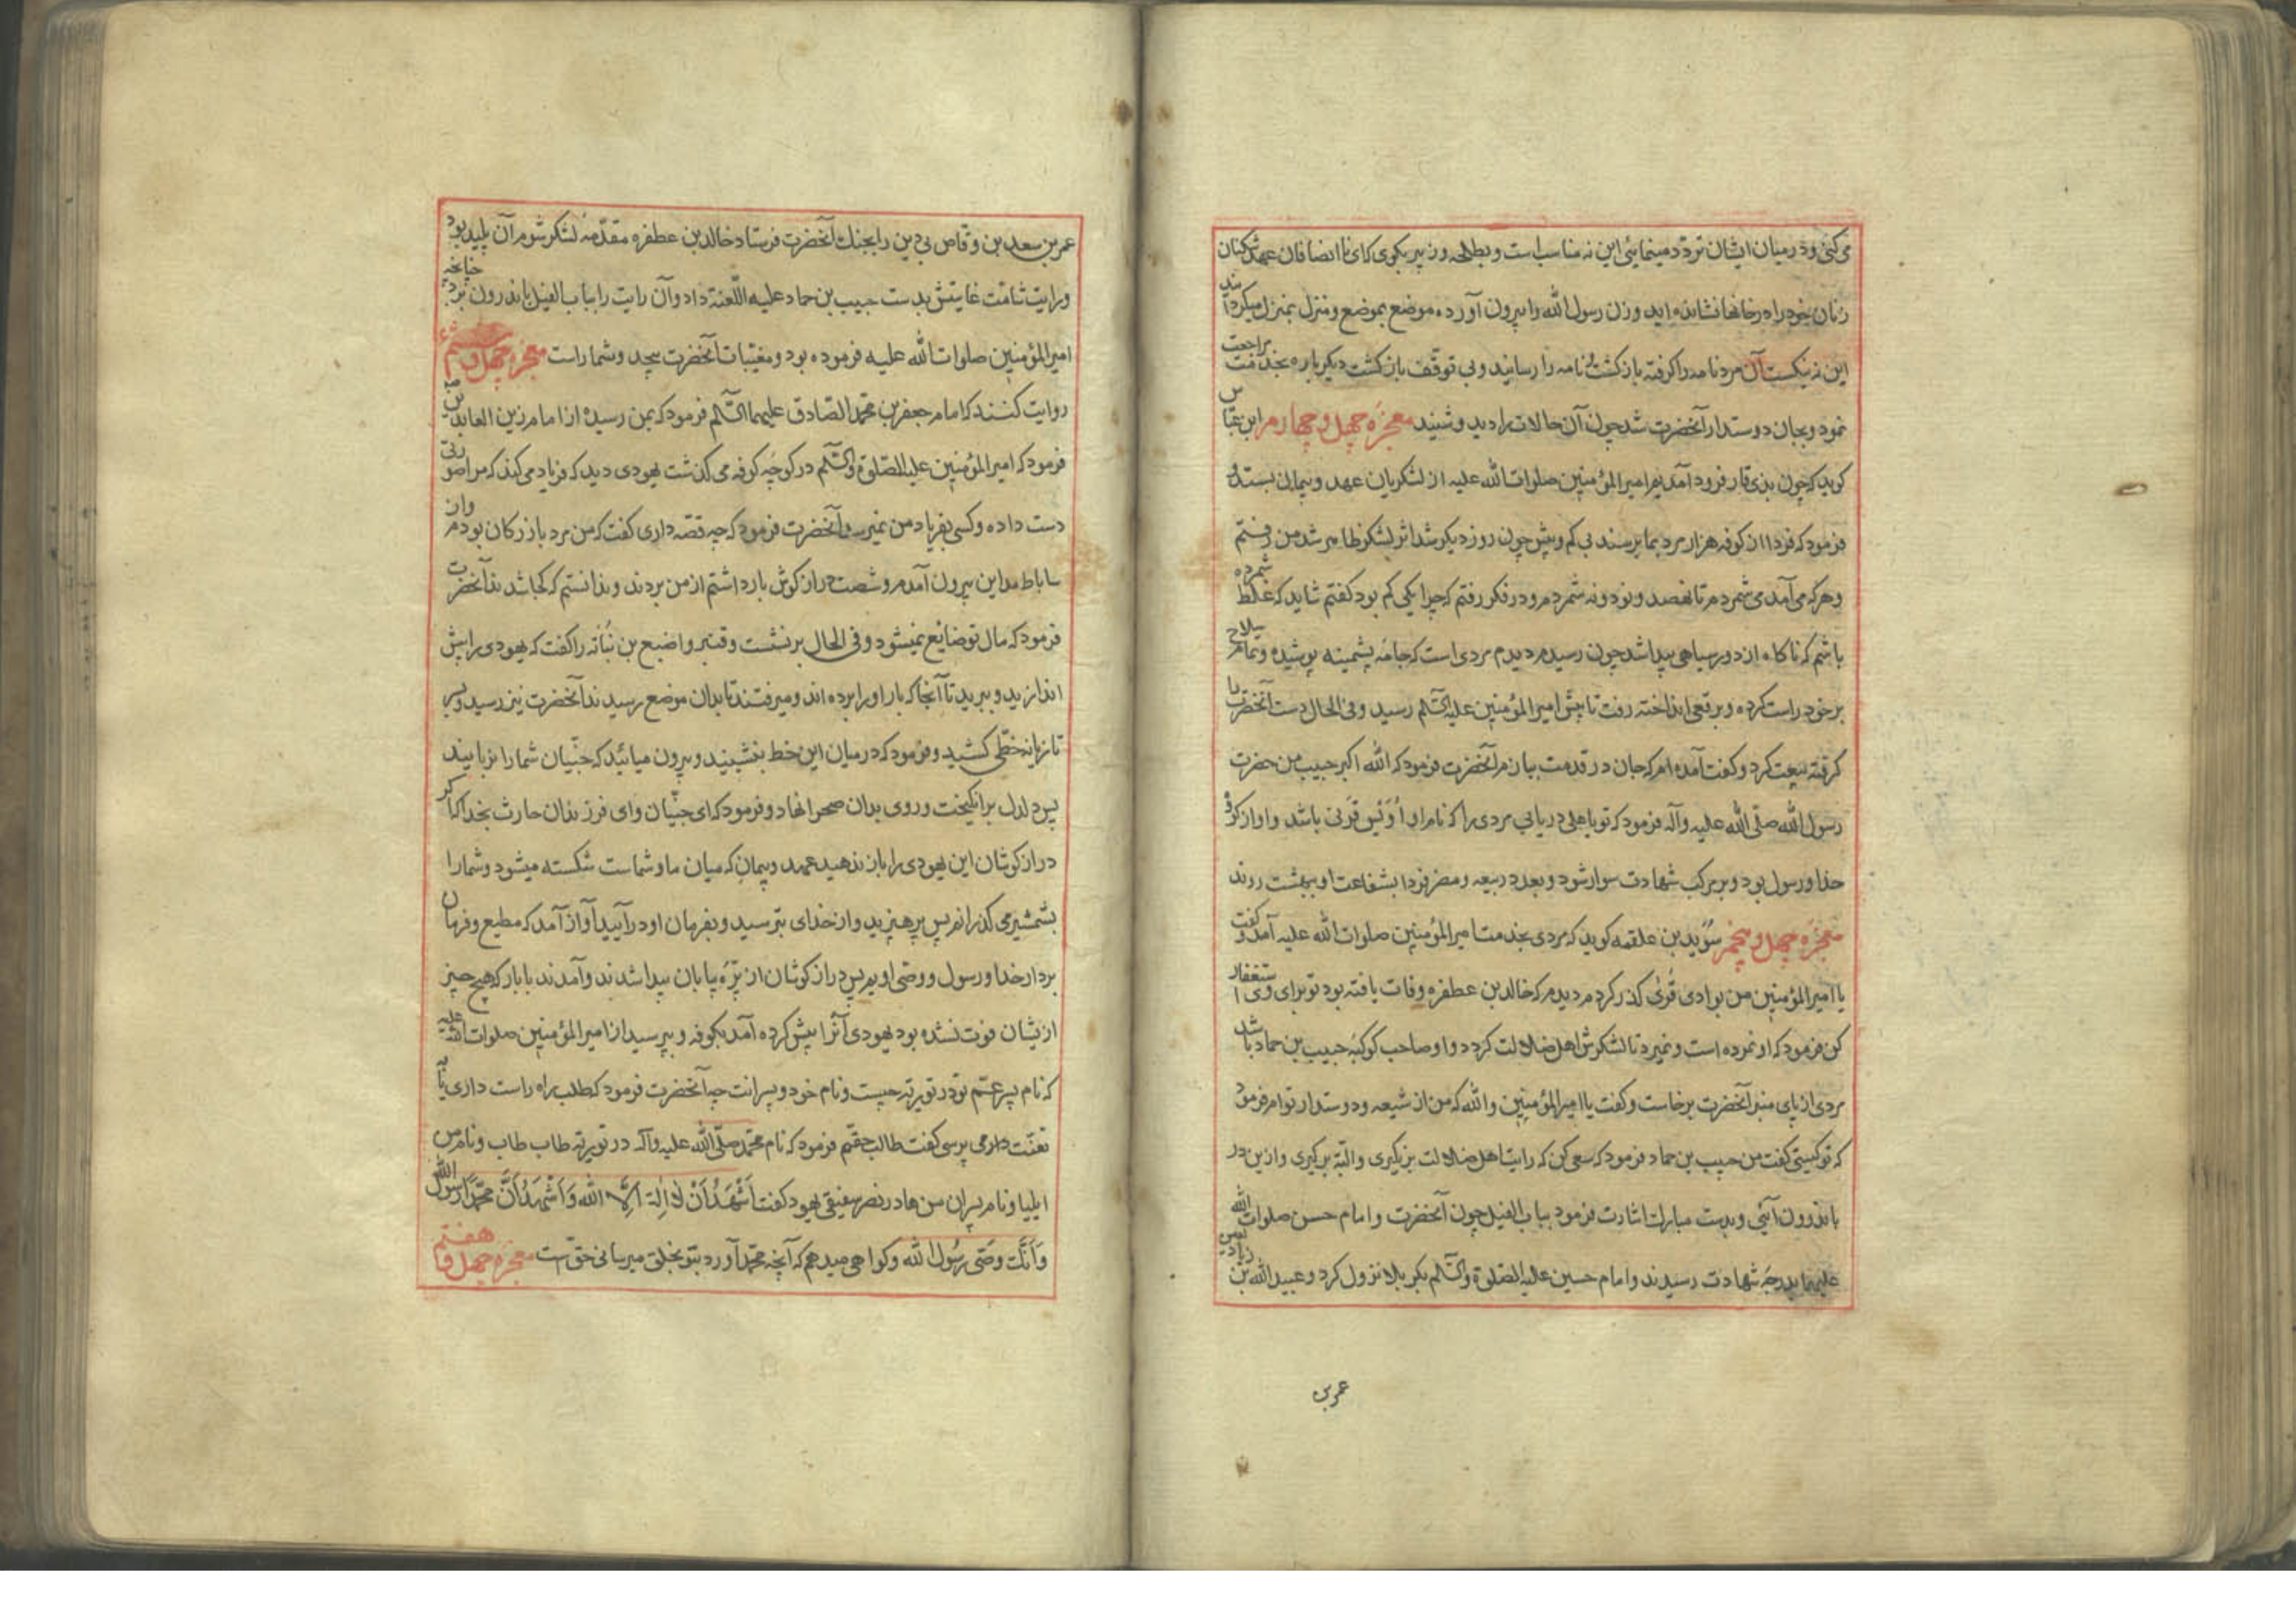 می‌کنی و در میان ایشان تردد مینمایئی این نه مناسب است و بطلحه و زبیر بکوی کای ناانصافان عهدشکنان
زنان خود را در خانها نشانده‌اید و زن رسول الله را بیرون آورده موضع بموضع و منزل بمنزل میکردانید
این نه نیکست آن مرد نامه را کرفته بازکشت و نامه را رسانید و بی توقف بازکشت دیکرباره بخدمت مراجعت
نمود و بجان دوستدار آنحضرت شد چون آن حالات را دید و شنید معجزه چهل و چهارم ابن عباس
کوید که چون بذی قار فرود آمدیم امیرالمؤمنین صلوات الله علیه از لشکریان عهد و پیمان بستد و
فرمود که فردا از کوفه هزار مرد بما برسند بی کم و بیش چون روز دیکر شد اثر لشکر ظاهر شد من رفتم
و هر که می‌آمد می‌شمردم تا نهصد و نود و نه شمردم و در فکر رفتم که چرا یکی کم بود کفتم شاید که غلط شمرده
باشم که ناکاه از دور سیاهی پیدا شد چون رسیدم دیدم مردی است که جامه پشمینه پوشیده و تمام سلاح
بر خود راست کرده و برقعی انداخته رفت تا پیش امیرالمؤمنین علیه السلم رسید و فی الحال دست آنحضرت را
کرفته بیعت کرد و کفت آمده‌ام که جان در قدمت ببازم آنحضرت فرمود که الله اکبر حبیب من حضرت
رسول الله صلی الله علیه وآله فرمود که تو یا علی دریابی مردی را که نام او اُوَیس قَرَنی باشد و او از کروه
خدا و رسول بود و بر مرکب شهادت سوار شود و بعدد ربیعه و مضر فردا بشفاعت او ببهشت روند
معجزه چهل و پنجم سُوَید بن علقمه کوید که مردی بخدمت امیرالمؤمنین صلوات الله علیه آمد و کفت
یا امیرالمؤمنین من بوادی قُریٰ کذر کردم دیدم که خالد بن عطفره وفات یافته بود تو برای وی استغفار
کن فرمود که او نمرده است و نمیرد تا لشکرش اهل ضلالت کردد و او صاحب کوکبه حبیب بن حماد باشد
مردی از پای منبر آنحضرت برخاست و کفت یا امیرالمؤمنین والله که من از شیعه و دوستدار توام فرمود
که تو کیستی کفت من حبیب بن حماد فرمود که سعی کن که رایت اهل ضلالت برنکیری و البته برکیری و از این در
باندرون آئی و بدست مبارک اشارت فرمود بباب الفیل چون آنحضرت و امام حسن صلوات الله
علیهما بدرجه شهادت رسیدند و امام حسین علیه الصلوة والسلم بکربلا نزول کرد و عبیدالله بن زیاد لعین
عمر بن
عمر بن سعد بن وقاص بی‌دین را بجنک آنحضرت فرستاد خالد بن عطفره مقدمه لشکر شوم آن پلید بود
و رایت شامت غایتش بدست حبیب بن حماد علیه اللعنة داد و آن رایت را بباب الفیل باندرون برد چنانچه
امیرالمؤمنین صلوات الله علیه فرموده بود و مغیبات آنحضرت بیحد و شمار است معجزه چهل و ششم
روایت کنند که امام جعفر بن محمد الصادق علیهما السلم فرمود که بمن رسیده از امام زین العابدین
فرمود که امیرالمؤمنین علیه الصلوة والسلم در کوچه کوفه می‌کذشت یهودی دید که فریاد می‌کند که مرا صورتی
دست داده و کسی بفریاد من نمیرسد آنحضرت فرمود که چه قصه داری کفت که من مرد بازرکان بودم و از
ساباط مداین بیرون آمدم و شصت درازکوش بار داشتم از من بردند و ندانستم که کجا شدند آنحضرت
فرمود که مال تو ضایع نمیشود و فی الحال برنشست و قنبر و اصبغ بن نُبَاته را کفت که یهودی را پیش
اندازید و ببرید تا آنجا که بار او را برده‌اند و میرفتند تا بدان موضع رسیدند آنحضرت نیز رسید و بسر
تازیانه خطی کشید و فرمود که در میان این خط بنشینید و بیرون میائید که جنیان شما را نربایند
پس دلدل برانکیخت و روی بدان صحرا نهاد و فرمود که ای جنیان و ای فرزندان حارث بخدا که اکر
درازکوشان این یهودی را باز ندهید عهد و پیمان که میان ما و شماست شکسته میشود و شما را
بشمشیر می‌کذرانم پس پرهیزید و از خدای بترسید و بفرمان او درآیید آواز آمد که مطیع و فرمان
بردار خدا و رسول و وصی اویم پس درازکوشان از بَرّه بیابان پیدا شدند و آمدند با بار که هیچ چیز
ازیشان فوت نشده بود یهودی آنرا پیش کرده آمد بکوفه و پرسید از امیرالمؤمنین صلوات الله علیه
که نام پسر عَمّ تو در توریة چیست و نام خود و پسرانت چه آنحضرت فرمود که طلب راه راست داری یا به
تعنت داری می‌پرسی کفت طالب حقم فرمود که نام محمد صلی الله علیه وآله در توریة طاب طاب و نام من
ایلیا و نام پسران من هادر نصر سفیقی یهود کفت اَشْهَدُ اَنْ لَا اِلٰهَ اِلَّا اللهُ وَ اَشْهَدُ اَنَّ مُحَمَّدًا رَسُولُ الله
وَ اَنَّکَ وَصیُّ رسُول الله و کواهی میدهم که آنچه محمد آورد بتو بخلق میرسانی حقست معجزه چهل و هفتم